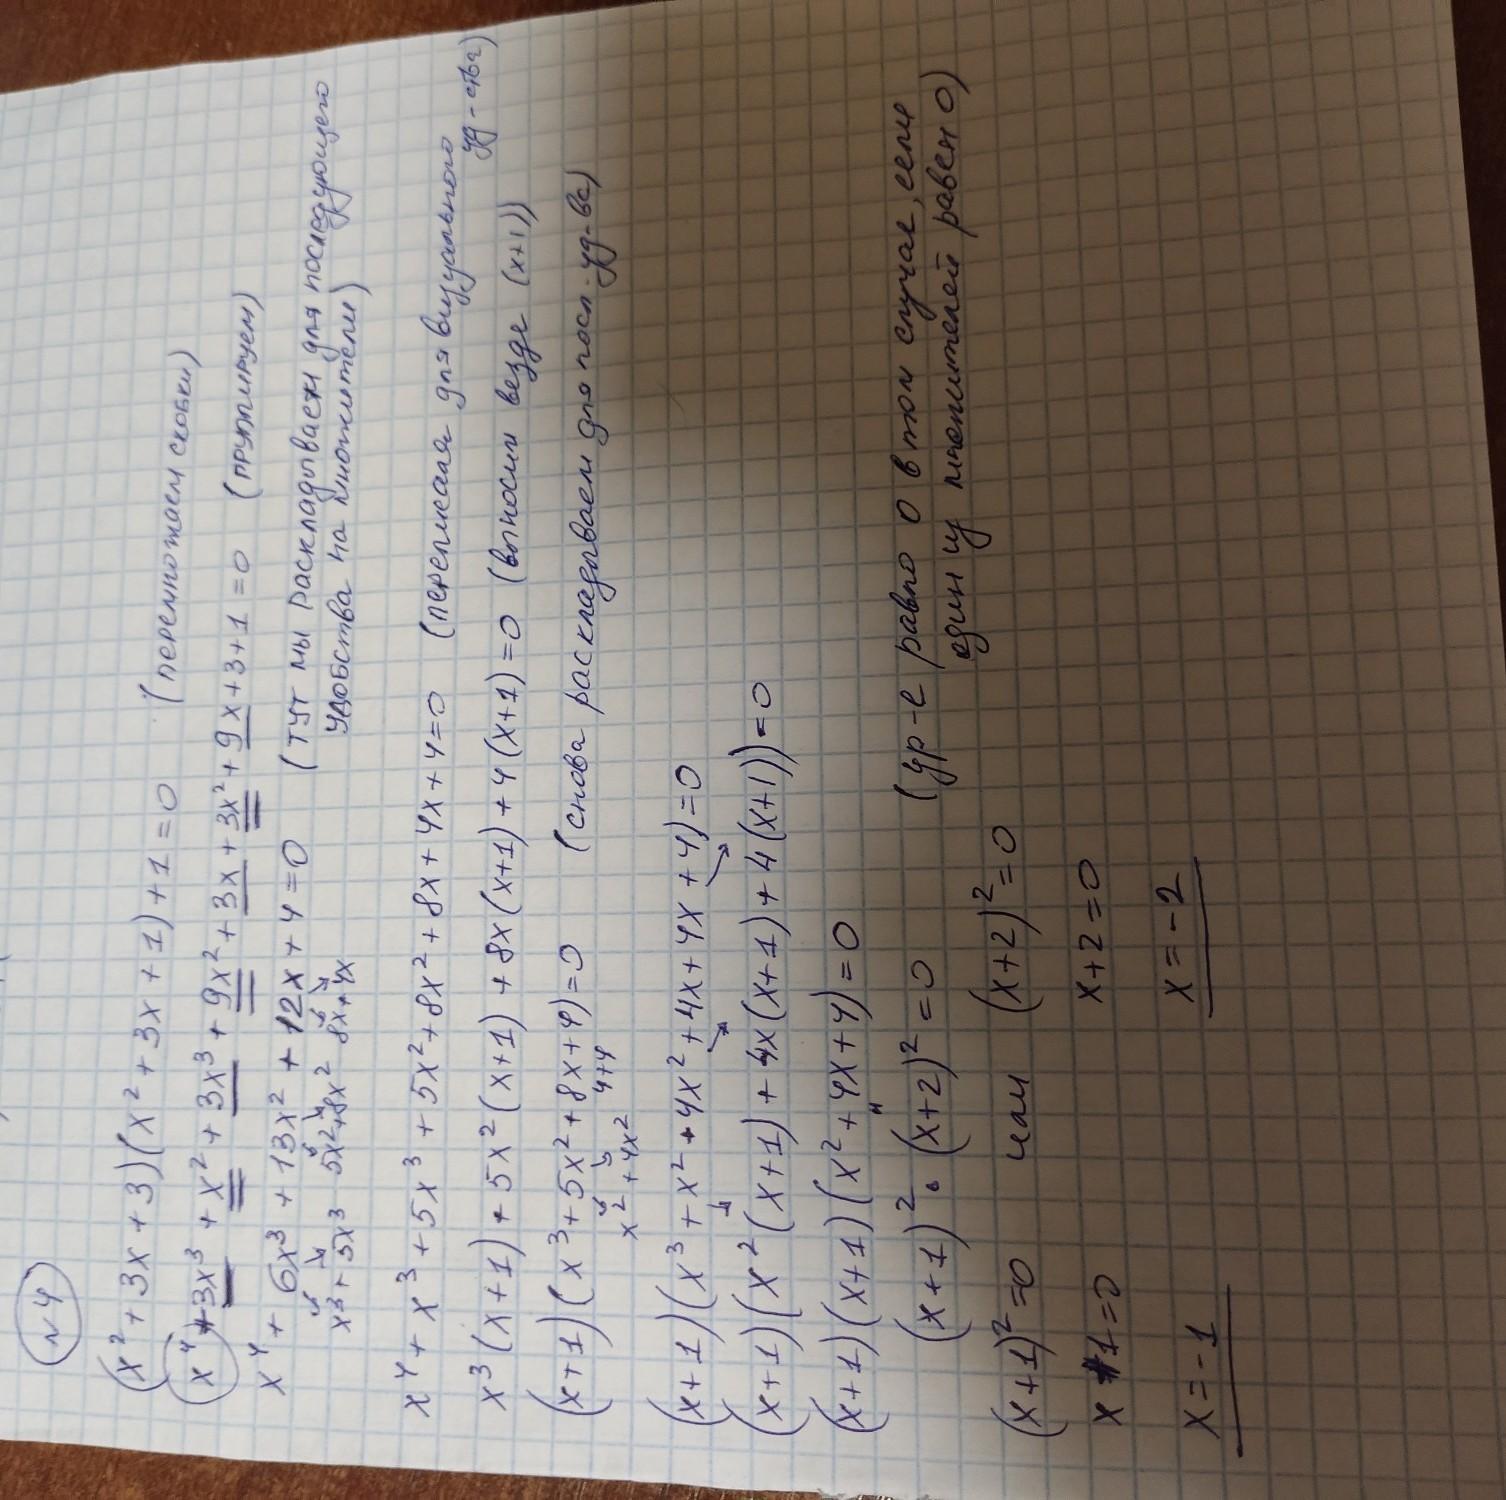 №4
(x² + 3x + 3)(x² + 3x + 1) + 1 = 0 (перемножаем скобки)
x⁴ + 3x³ + x² + 3x³ + 9x² + 3x + 3x² + 9x + 3 + 1 = 0 (группируем)
x⁴ + 6x³ + 13x² + 12x + 4 = 0 (тут мы раскладываем для последующего
x³ + 5x³ 5x² + 8x² 8x + 4x удобства на множители)
x⁴ + x³ + 5x³ + 5x² + 8x² + 8x + 4x + 4 = 0 (переписала для визуального уд-ства)
x³(x+1) + 5x²(x+1) + 8x(x+1) + 4(x+1) = 0 (выносим везде (x+1))
(x+1)(x³ + 5x² + 8x + 4) = 0 (снова раскладываем для посл. уд-ва)
x² + 4x² 4+4
(x+1)(x³ + x² + 4x² + 4x + 4x + 4) = 0
(x+1)(x²(x+1) + 4x(x+1) + 4(x+1)) = 0
(x+1)(x+1)(x² + 4x + 4) = 0
(x+1)² · (x+2)² = 0 (ур-е равно 0 в том случае, если
один из множителей равен 0)
(x+1)² = 0 или (x+2)² = 0
x + 1 = 0 x + 2 = 0
x = -1 x = -2